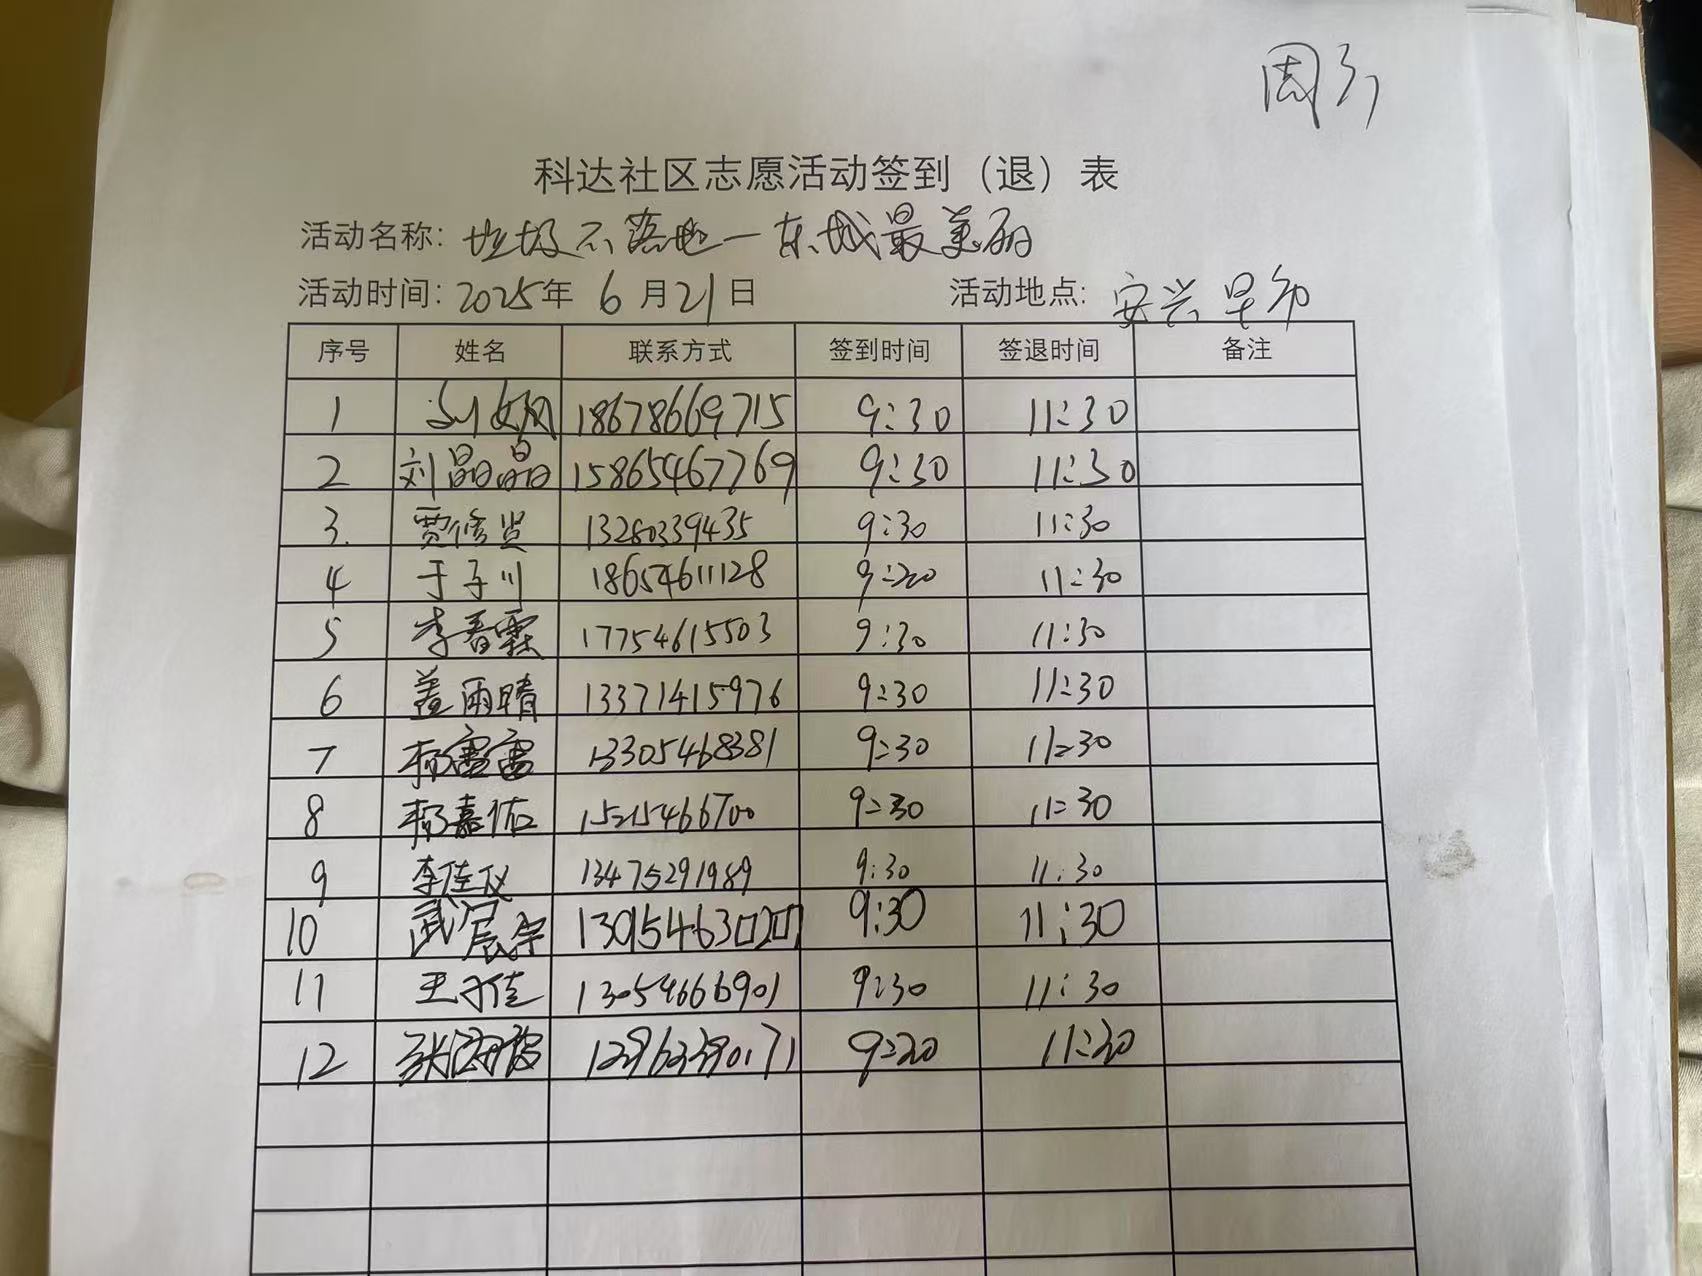 科达社区志愿活动签到（退）表
活动名称: 垃圾不落地一东城最美丽
活动时间: 2025年 6 月 21 日 活动地点: 安兴早市
序号 姓名 联系方式 签到时间 签退时间 备注
1 18678669715 9:30 11:30
2 刘晶晶 15865467769 9:30 11:30
3. 13280339435 9:30 11:30
4 于子川 18654611128 11:30
5 李春霖 17754615503 9:30 11:30
6 盖雨晴 13371415976 9:30 11:30
7 杨雷雷 13305468381 9:30 11:30
8 杨嘉佑 15215466700 9:30 11:30
9 李佳仪 13475291989 9:30 11:30
10 武宸宇 9:30 11:30
11 王子佳 13054666901 9:30 11:30
12